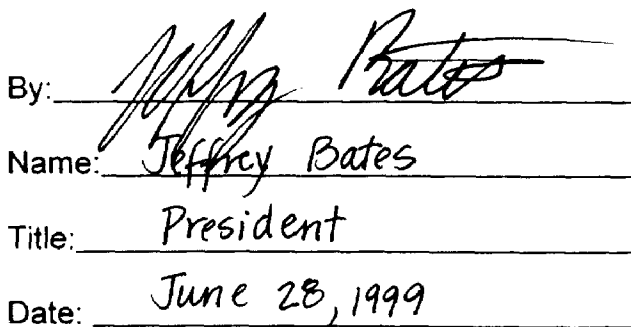 By: Jeffrey Bates
Name: Jeffrey Bates
Title: President
Date: June 28, 1999